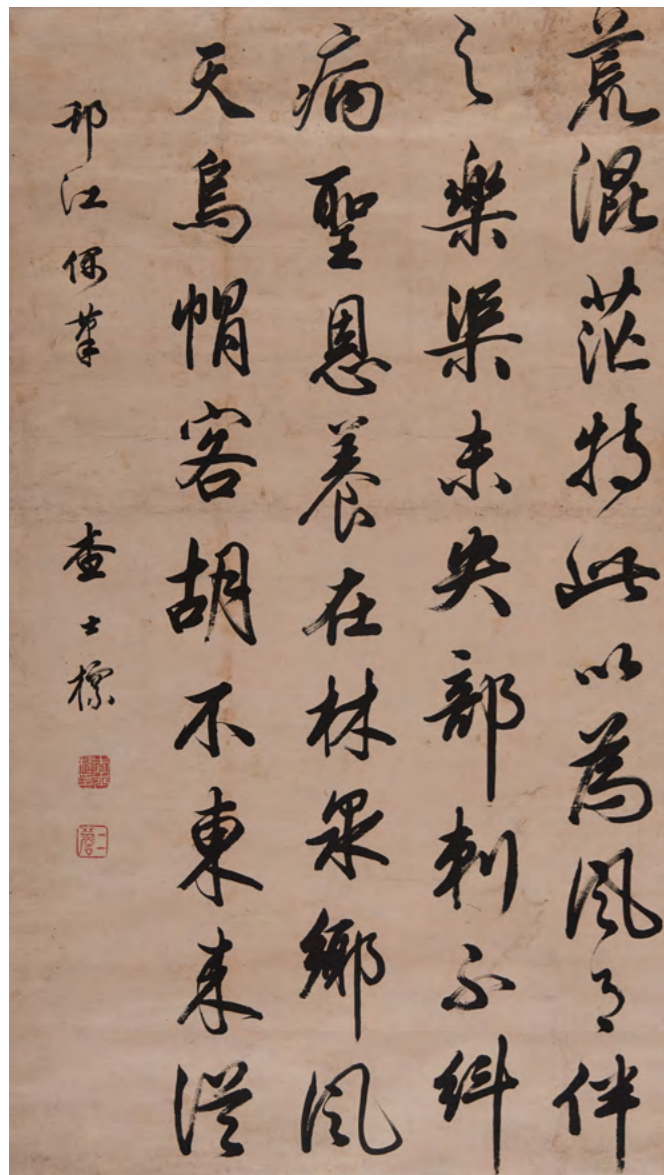 荒混茫特此以為風月伴
之樂渠未央部刺不糾
病聖恩養在林泉鄉風
天烏帽客胡不東来從
邗江偶筆 查士標